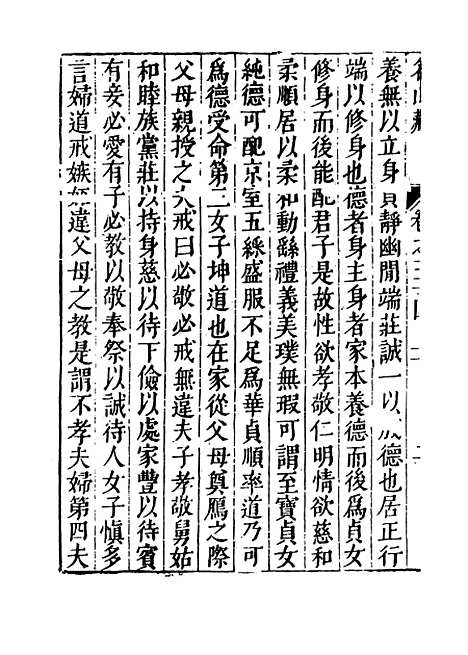 養無以立身貞靜幽閒端莊誠一以德也居正行
端以修身也德者身主身者家本養德而後爲貞女
修身而後能配君子是故性欲孝敬仁明情欲慈和
柔順居以柔和動繇禮義美璞無瑕可謂至寶貞女
純德可配京室五綵盛服不足爲華貞順率道乃可
爲德受命第三女子坤道也在家從父母奠鴈之際
父母親授之大戒曰必敬必戒無違夫子孝敬舅姑
和睦族黨莊以持身慈以待下儉以處家豐以待賓
有妾必愛有子必教以敬奉祭以誠待人女子愼多
言婦道戒嫉違父母之教是謂不孝夫婦第四夫